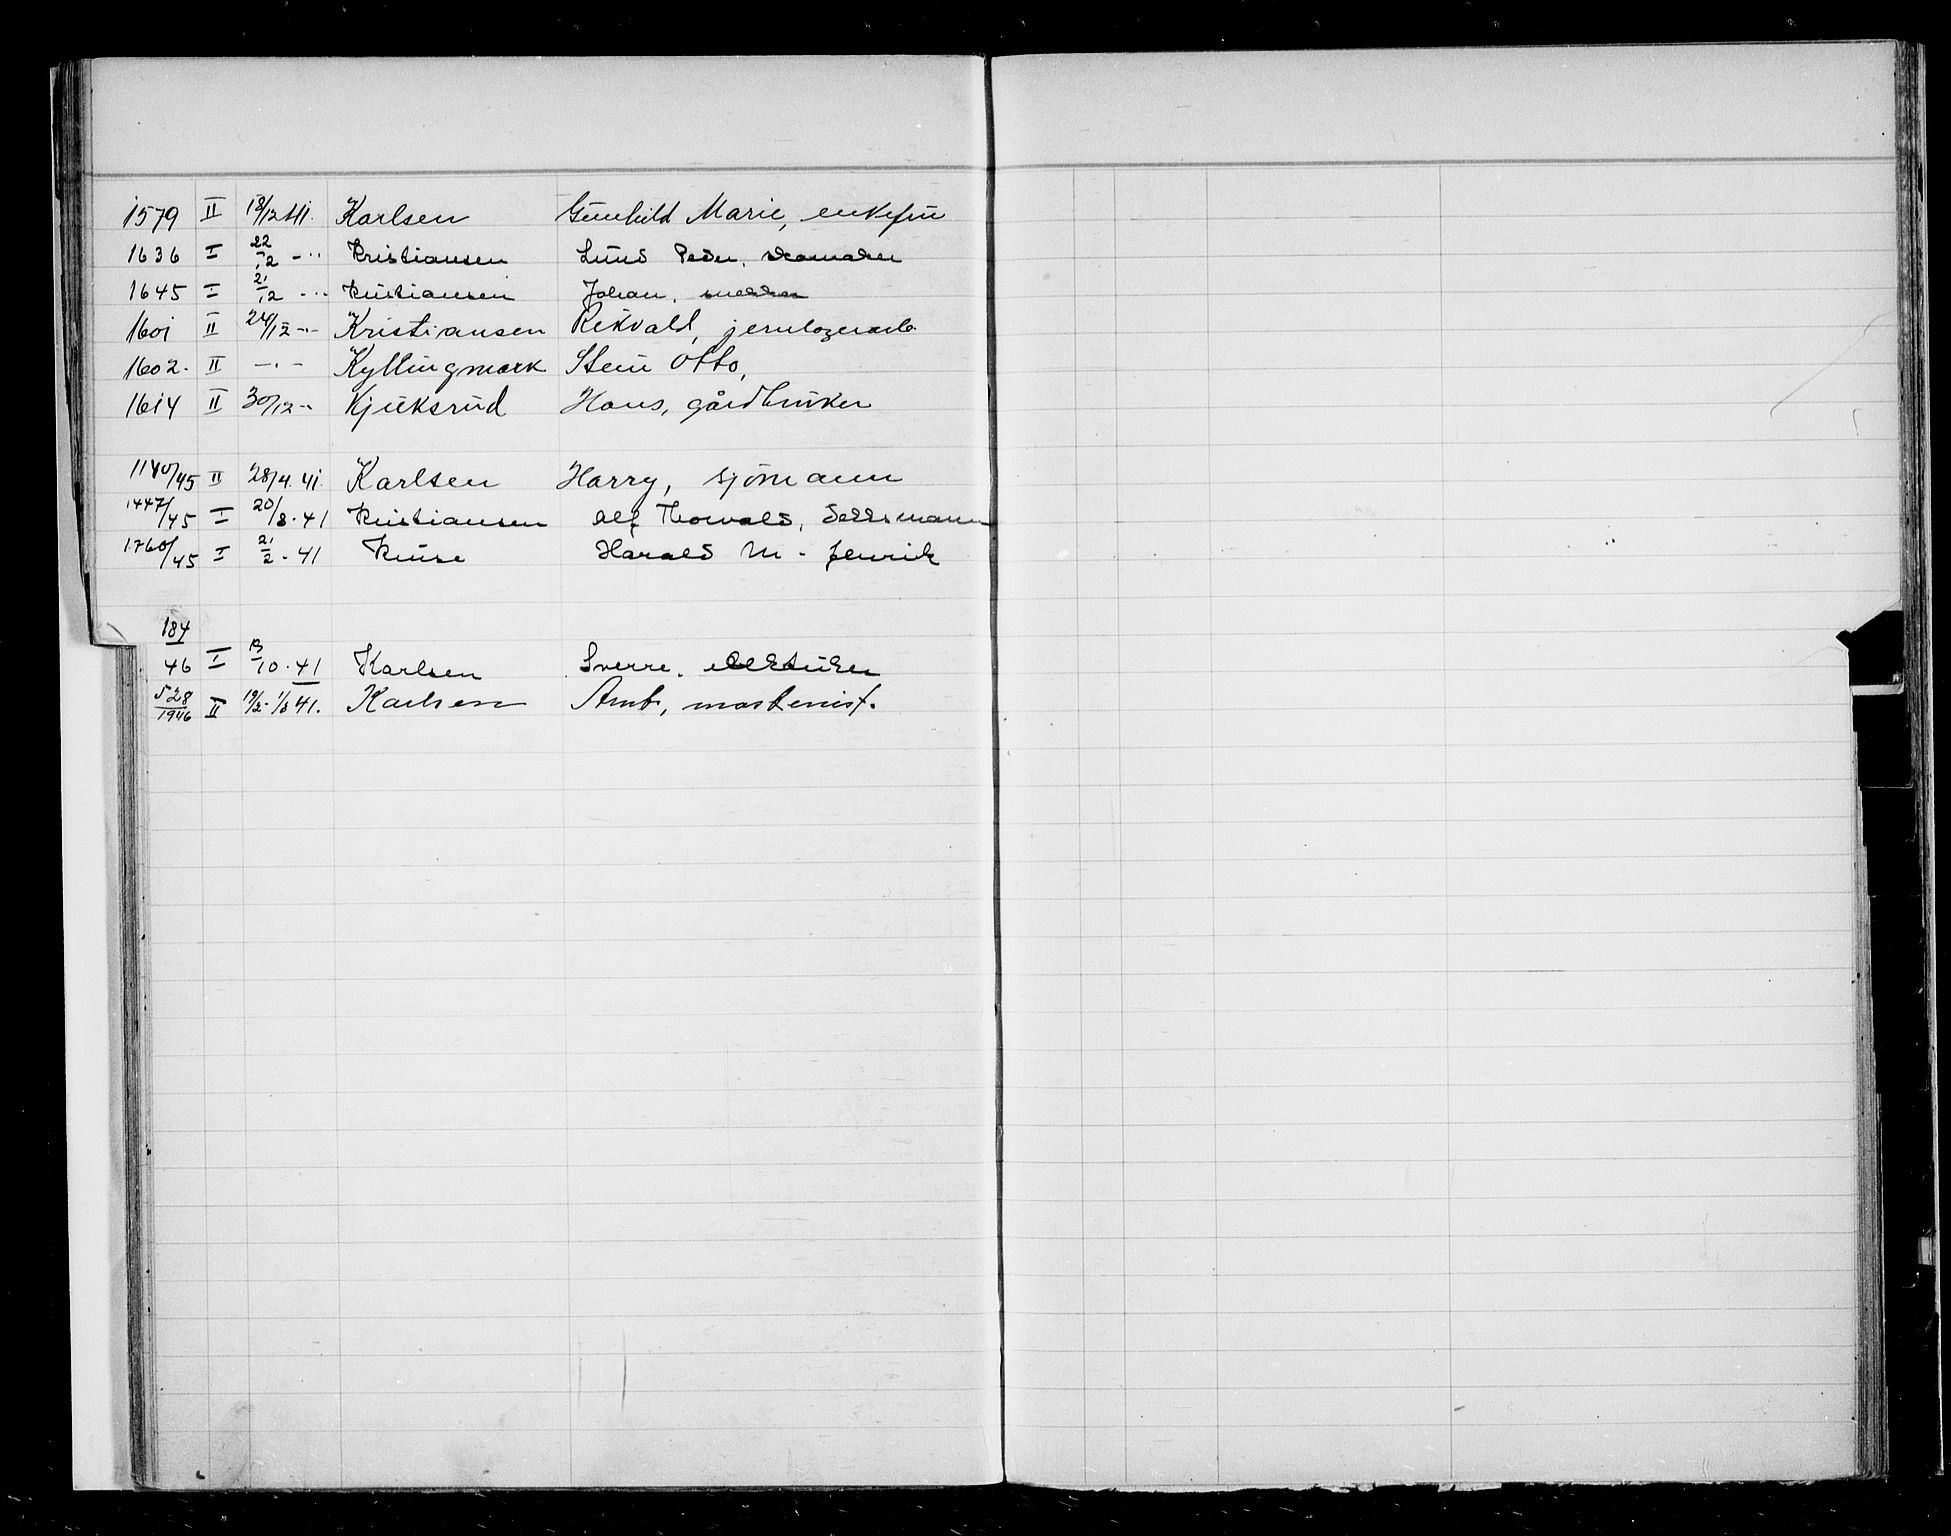 1579 II 18/12 41. Karlsen Gunhild Marie, enkefru
1636 I 22/12 -·· Kristiansen Lund Peder, skomaker
1645 I 21/12 -·· Kristiansen Johan, snekker
1601 II 24/12 -·- Kristiansen Rikvald, jernlagerarb.
1602. II -·- Kyllingmark Stein Otto,
1614 II 30/12 -·- Kjuksrud Hans, gårdbruker
1140/45 II 28/4. 41. Karlsen Harry, sjømann
1447/45 I 20/8. 41 Kristiansen Alf Thorvald,
1760/45 I 21/2. 41 Kruse Harald M. Henrik
184
46 I 13/10. 41 Karlsen Sverre.
528/1946 II 19/2- 1/3 41. Karlsen Arnt, maskenist.